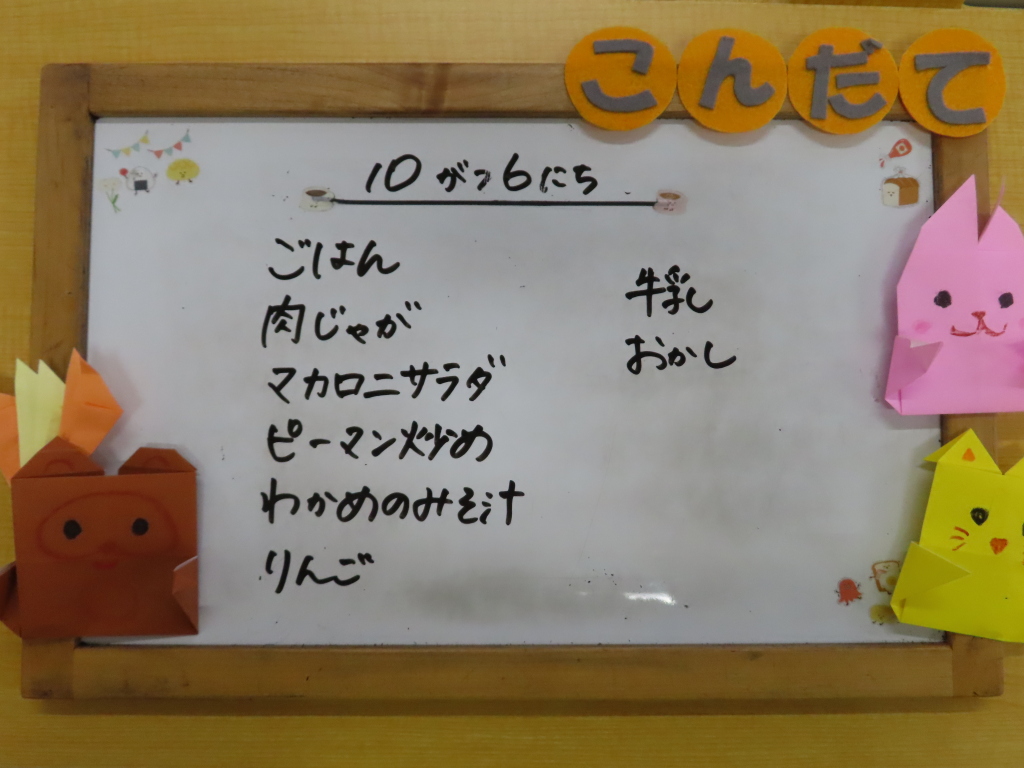 こんだて
10がつ6にち
ごはん
肉じゃが
マカロニサラダ
ピーマン炒め
わかめのみそ汁
りんご
牛乳
おかし